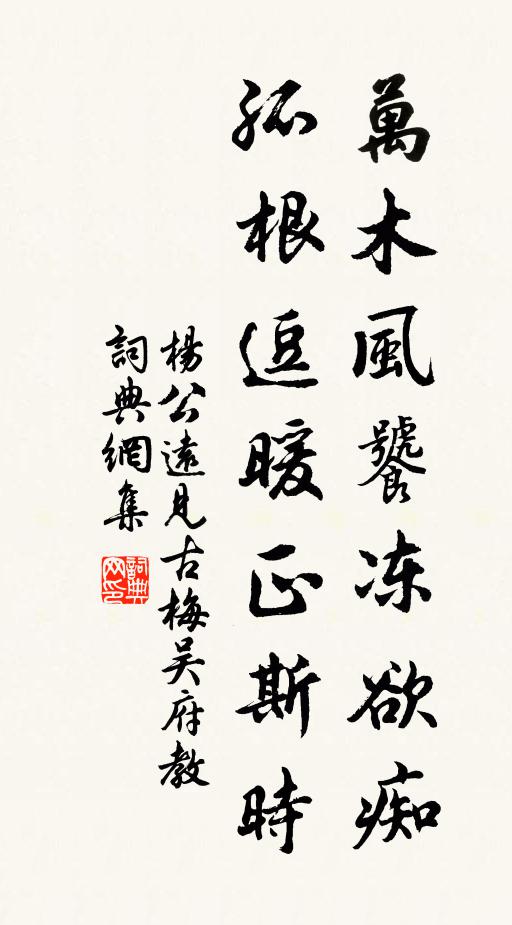 萬木風饕冻欲痴
孤根逗暖正斯時
楊公遠見古梅吴府教
詞典網集
詞典网印